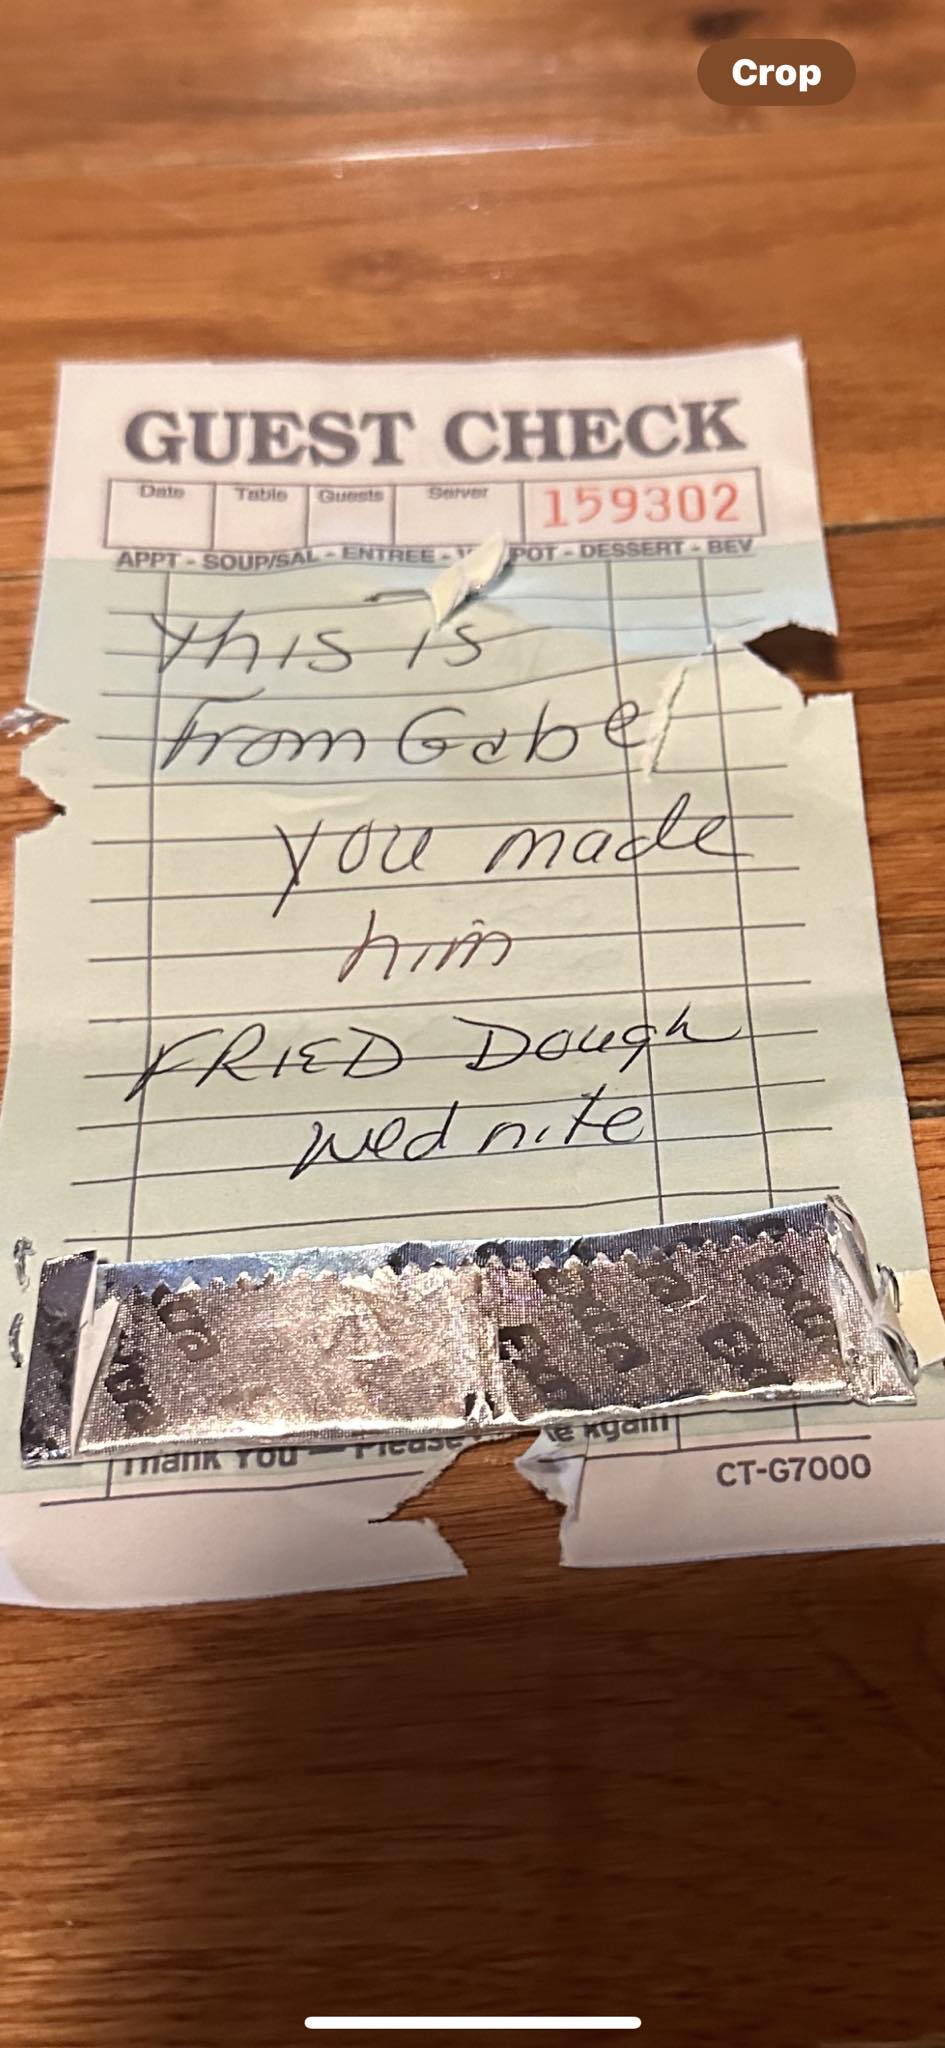 Crop
GUEST CHECK
Date Table Guests Server 159302
APPT - SOUP/SAL - ENTREE - POT - DESSERT - BEV
This is
from Gabe
you made
him
FRIED Dough
wed nite
Thank You — Please Again
CT-G7000